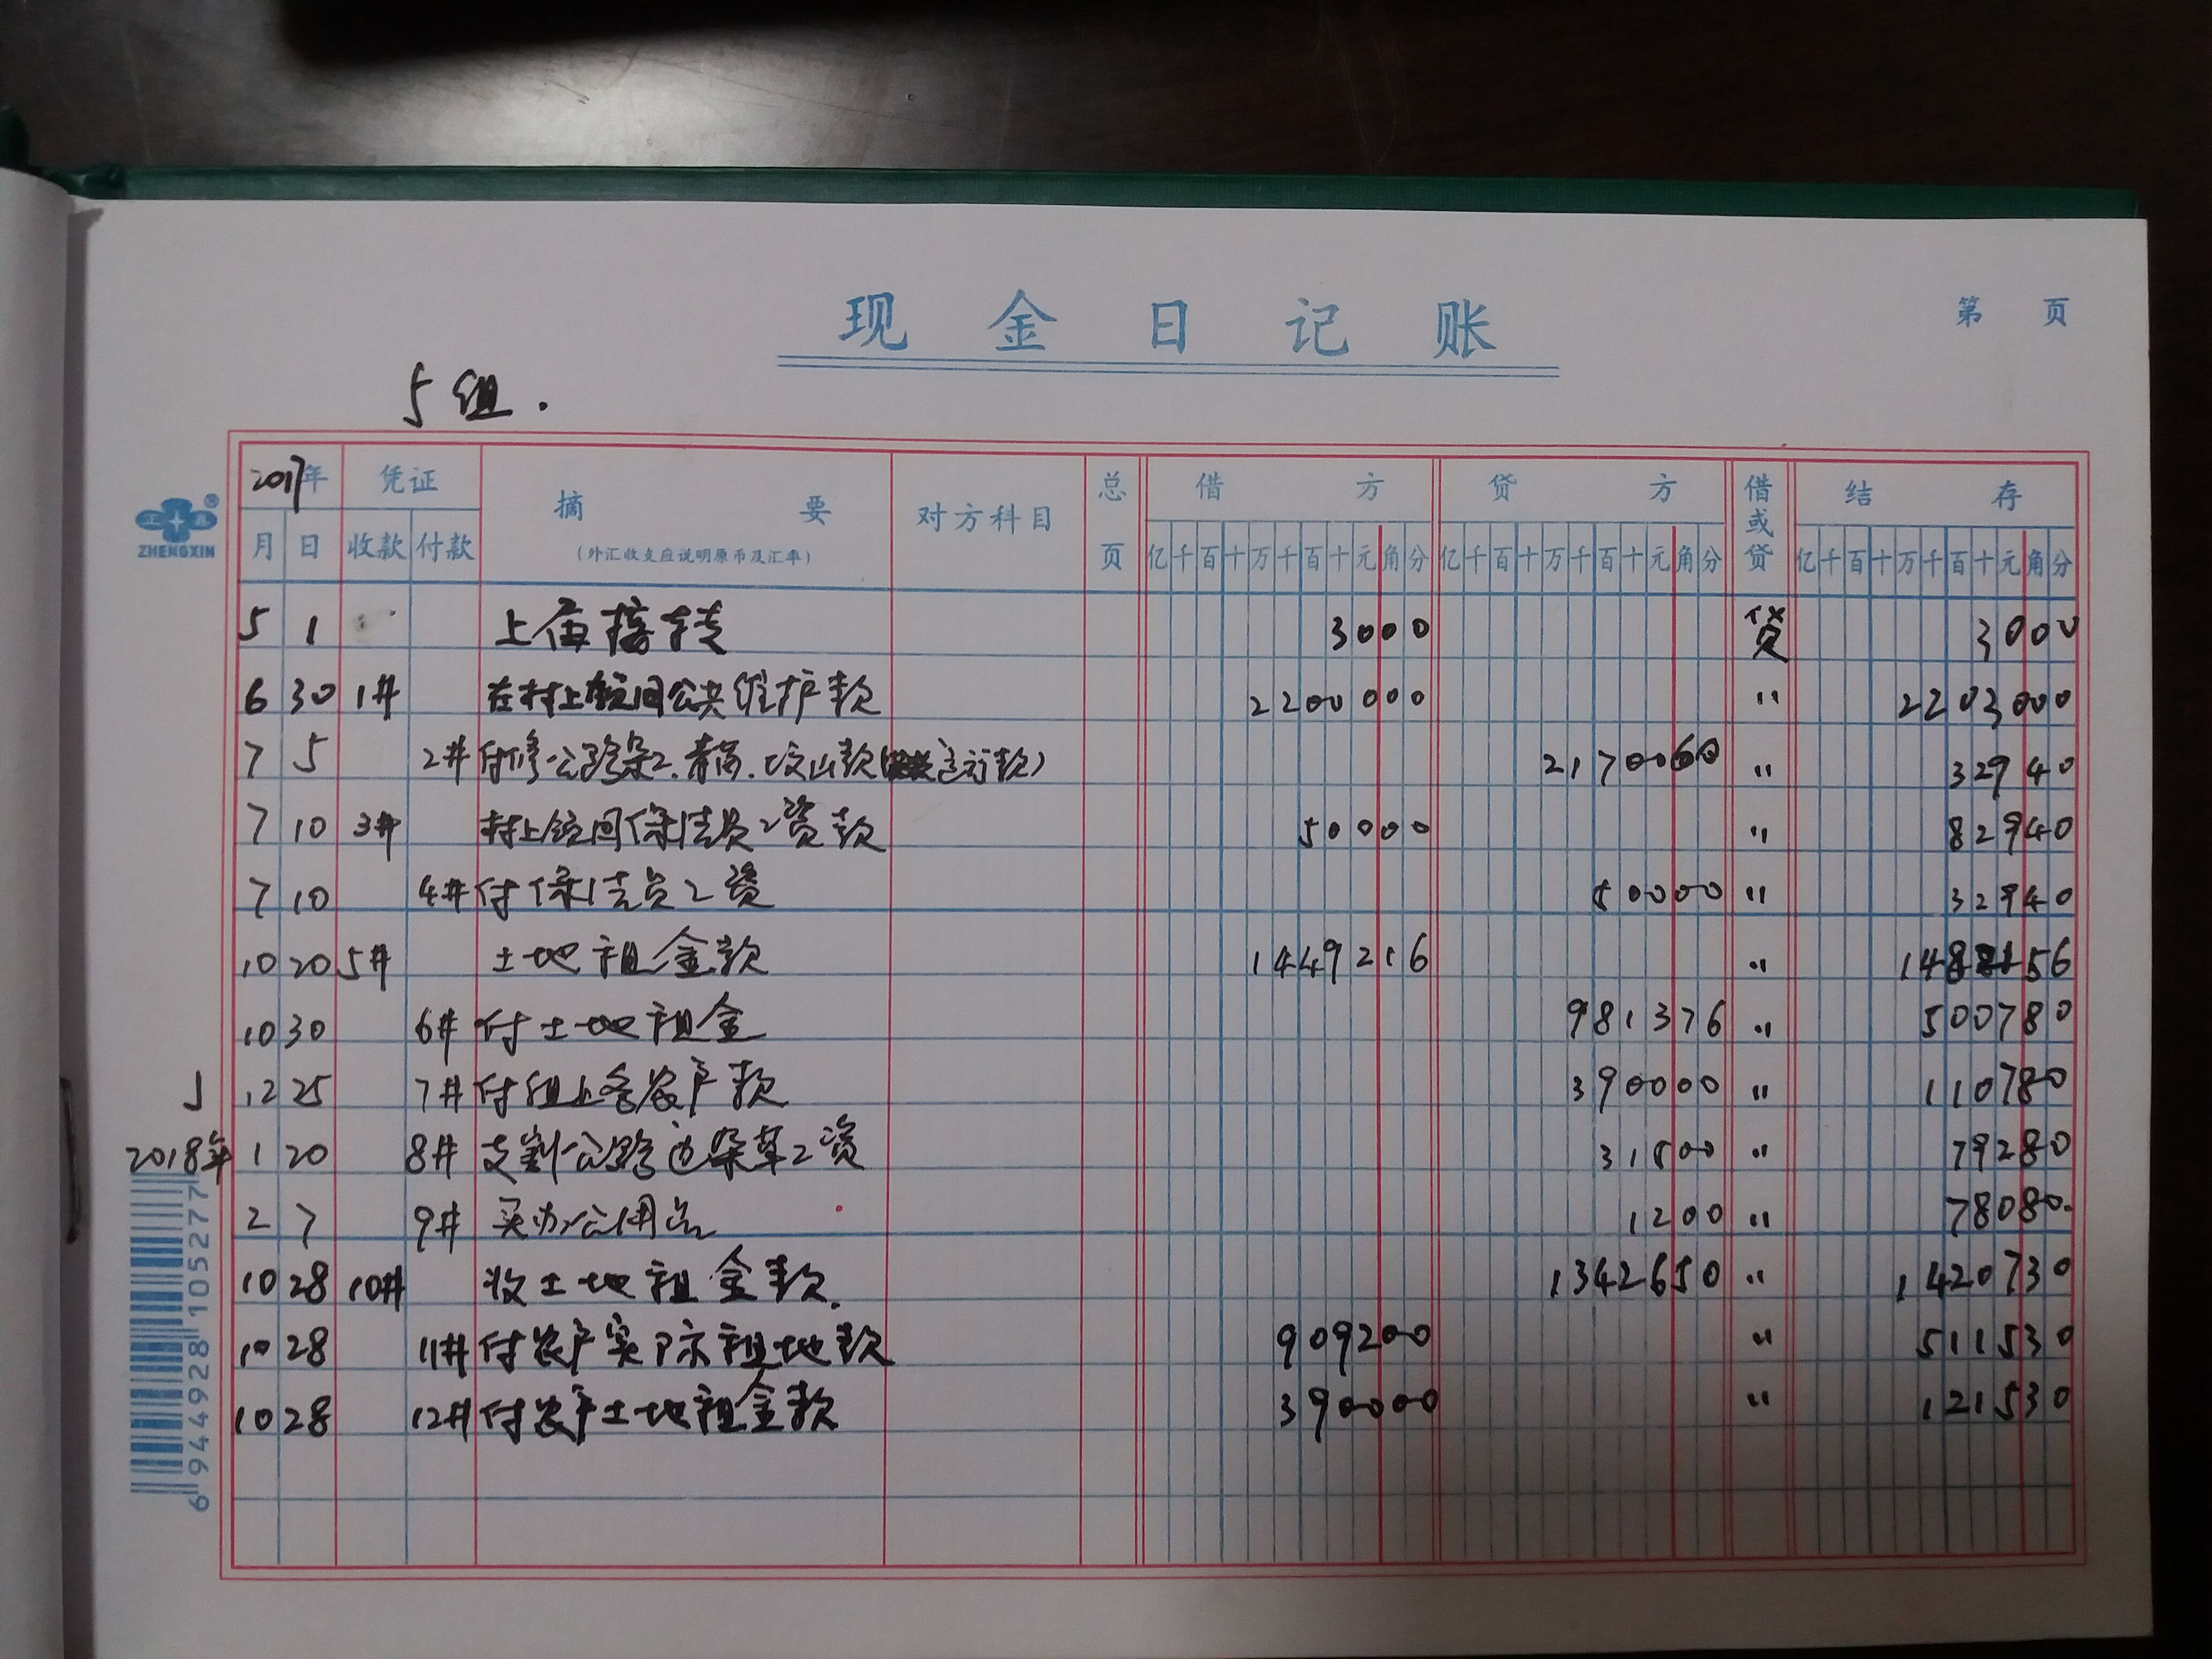 现金日记账
第 页
5组.
2017年 凭证 摘要 对方科目 总页 借方 贷方 借或贷 结存
月 日 收款 付款 (外汇收支应说明原币及汇率) 亿千百十万千百十元角分 亿千百十万千百十元角分 亿千百十万千百十元角分
ZHENGXIN
5 1 上届接转 3000 贷 3000
6 30 1# 在村上领回公共维护款 2200000 〃 2203000
7 5 2# 付修公路杂工. 款( 款) 2170060 〃 32940
7 10 3# 村上领回保洁员工资款 50000 〃 82940
7 10 4# 付保洁员工资 50000 〃 32940
10 20 5# 土地租金款 1449216 〃 148 56
10 30 6# 付土地租金 981376 〃 500780
12 25 7# 付组上各农户款 390000 〃 110780
2018年 1 20 8# 支割公路边杂草工资 31500 〃 79280
2 7 9# 买办公用品 1200 〃 78080.
10 28 10# 收土地租金款. 1342650 〃 1420730
10 28 11# 付农户实际租地款 909200 〃 511530
10 28 12# 付农户土地租金款 390000 〃 121530
6944928105277